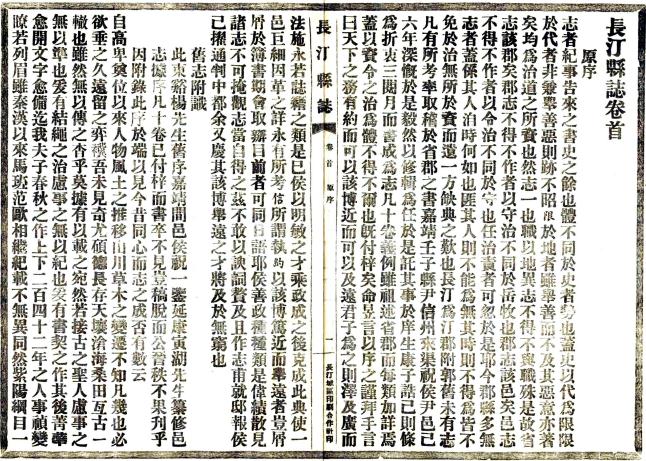 長汀縣誌卷首
原序
志者紀事告來之書史之餘也體不同於史者勞也蓋史以代為限限
於代者非兼舉善惡則跡不昭限於地者雖舉善而不及其惡意亦著
矣均為治道之所資也然志一也職以地異志不得不與職殊是故省
志該郡矣郡志不得不作者以守治不同於岳牧也郡志該邑矣邑志
不得不作者以令治不同於守也任治責者可忽於是耶今郡縣多無
志者蓋係其人泊時何如也匪其人則不能為無其時則不得為皆不
免於治無所於資而遺一方缺典之歎也長汀為汀郡附郭舊未有志
凡有所考率取稽於省郡之書嘉靖壬子縣尹信州來集祝侯尹邑已
六年深慨於是毅然以修輯為任於是託其事於庠生康子誥已則條
為折衷三閱月而書成為志凡十卷義例雖祖述省郡而每類加詳焉
蓋以資今之治為體不得不爾也既付梓矣命昱言以序之謹拜手言
曰天下之務有約而可以該博近而可以及遠君子為之則澤及廣而
長汀縣誌
卷首 原序
一
長汀城區印刷合作社印
法施永若誌籍之類是已侯以明敏之才乘政成之後克成此典使一
邑巨細因革之詳永有所考信所謂執約以該博篤近而舉遠者豈屑
屑於簿書期會取辦目前者可同日語耶侯善政種種類是偉績散見
諸志不可掩觀志當自得之茲不敢以諛詞贅及且作志甫就邸報侯
已擢通判中都余又慶其該博舉遠之才將及於無窮也
舊志附識
此東谿楊先生舊序嘉靖間邑侯祝一鑒延康寅湖先生纂修邑
志據序凡十卷已付梓而書卒不見豈稿脫而公晉秩不果刊乎
因附錄此序於端以見今昔同心而志之成否有數云
自高卑奠位以來人物風土之推移山川草木之變遷不知凡幾也必
欲垂之久遠留之弈禩吾未見奇尤碩德長存天壤滄海桑田亙古一
轍也雖然無以傳之杳乎莫據有以載之宛然若接古之聖人慮事之
無以準也爰有結繩之治慮事之無以紀也爰有書契之作其後菁華
愈開文字愈備迄我夫子春秋之作上下二百四十二年之人事禎變
瞭若列眉雖秦漢以來馬班范歐相繼紀載不無異同然紫陽綱目一